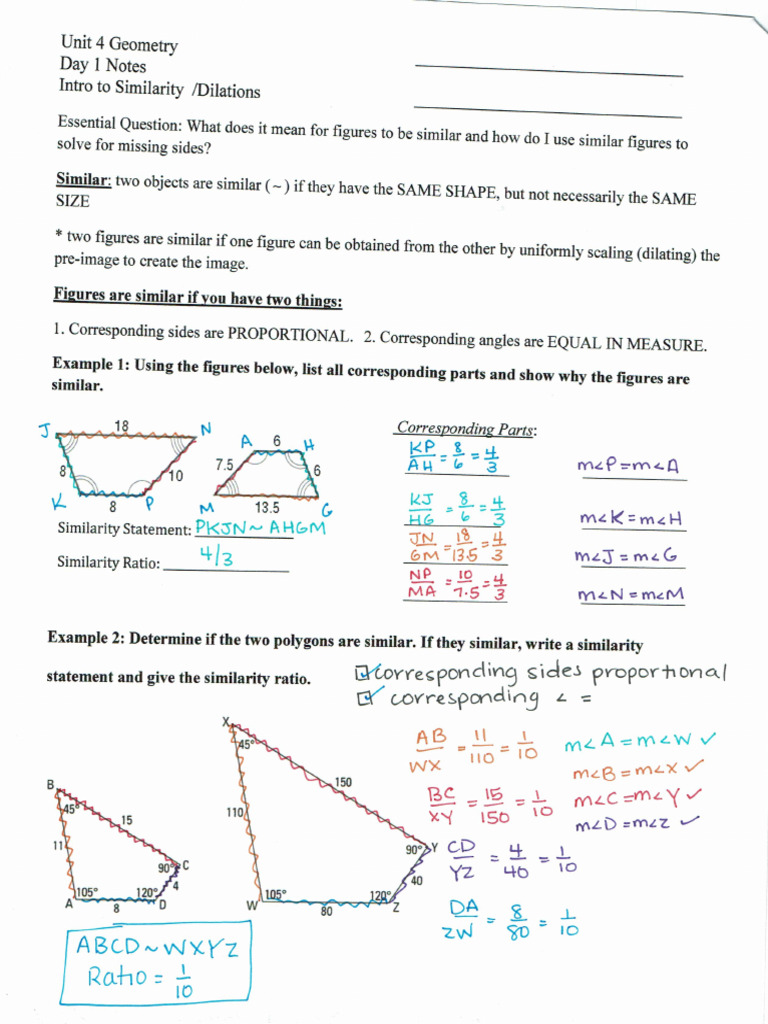 Unit 4 Geometry
Day 1 Notes
Intro to Similarity /Dilations
Essential Question: What does it mean for figures to be similar and how do I use similar figures to
solve for missing sides?
Similar: two objects are similar ( ~ ) if they have the SAME SHAPE, but not necessarily the SAME
SIZE
* two figures are similar if one figure can be obtained from the other by uniformly scaling (dilating) the
pre-image to create the image.
Figures are similar if you have two things:
1. Corresponding sides are PROPORTIONAL. 2. Corresponding angles are EQUAL IN MEASURE.
Example 1: Using the figures below, list all corresponding parts and show why the figures are
similar.
J 18 N
8 10
K 8 P
A 6 H
7.5 6
M 13.5 G
Similarity Statement: PKJN ~ AHGM
Similarity Ratio: 4/3
Corresponding Parts:
KP/AH = 8/6 = 4/3 m∠P = m∠A
KJ/HG = 8/6 = 4/3 m∠K = m∠H
JN/GM = 18/13.5 = 4/3 m∠J = m∠G
NP/MA = 10/7.5 = 4/3 m∠N = m∠M
Example 2: Determine if the two polygons are similar. If they similar, write a similarity
statement and give the similarity ratio.
☑ corresponding sides proportional
☑ corresponding ∠ =
B
45°
15
11
90° C
4
105° 120°
A 8 D
X
45°
150
110
90° Y
40
105° 120°
W 80 Z
AB/WX = 11/110 = 1/10 m∠A = m∠W ✓
m∠B = m∠X ✓
BC/XY = 15/150 = 1/10 m∠C = m∠Y ✓
m∠D = m∠Z ✓
CD/YZ = 4/40 = 1/10
DA/ZW = 8/80 = 1/10
ABCD ~ WXYZ
Ratio = 1/10